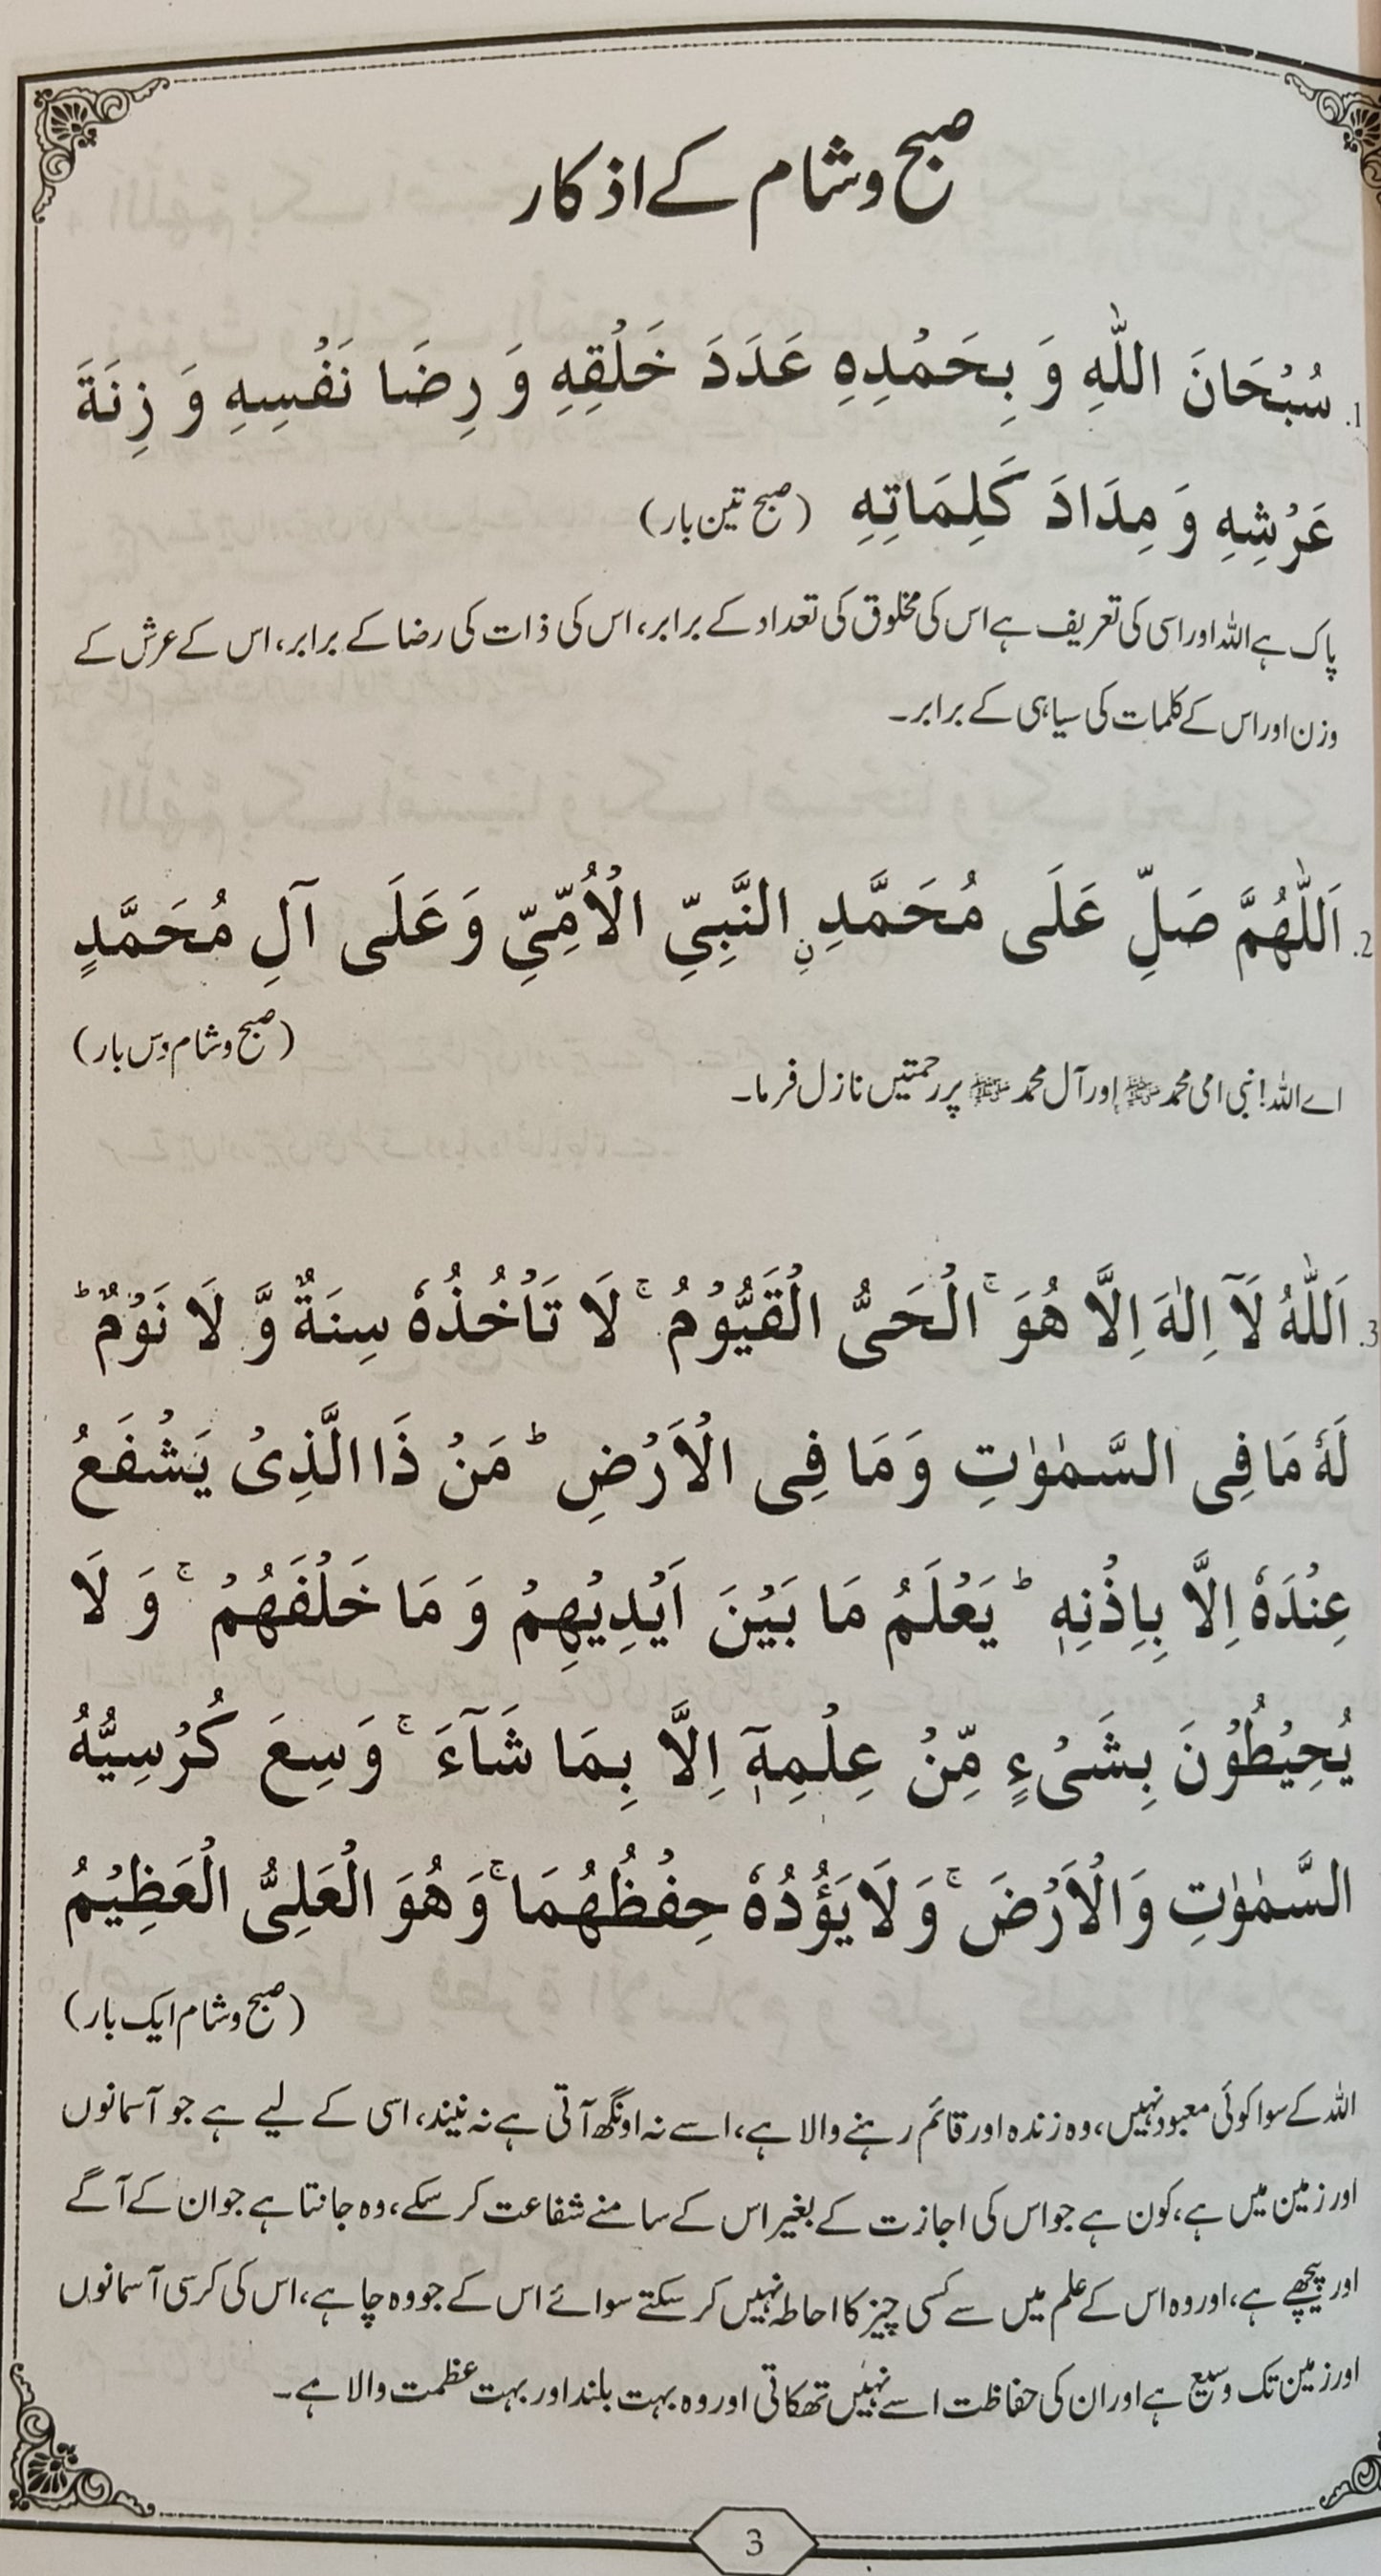 صبح و شام کے اذکار
1. سُبْحَانَ اللّٰهِ وَ بِحَمْدِهِ عَدَدَ خَلْقِهِ وَ رِضَا نَفْسِهِ وَ زِنَةَ
عَرْشِهِ وَ مِدَادَ كَلِمَاتِهِ (صبح تین بار)
پاک ہے اللہ اور اسی کی تعریف ہے اس کی مخلوق کی تعداد کے برابر، اس کی ذات کی رضا کے برابر، اس کے عرش کے
وزن اور اس کے کلمات کی سیاہی کے برابر۔
2. اَللّٰهُمَّ صَلِّ عَلَى مُحَمَّدِ نِ النَّبِيِّ الْاُمِّيِّ وَعَلَى آلِ مُحَمَّدٍ
(صبح و شام دس بار)
اے اللہ! نبی امی محمد ﷺ اور آل محمد ﷺ پر رحمتیں نازل فرما۔
3. اَللّٰهُ لَآ اِلٰهَ اِلَّا هُوَ ۚ اَلْحَیُّ الْقَیُّوْمُ ۚ لَا تَاْخُذُهٗ سِنَةٌ وَّ لَا نَوْمٌ ؕ
لَهٗ مَا فِی السَّمٰوٰتِ وَمَا فِی الْاَرْضِ ؕ مَنْ ذَا الَّذِیْ یَشْفَعُ
عِنْدَهٗ اِلَّا بِاِذْنِهٖ ؕ یَعْلَمُ مَا بَیْنَ اَیْدِیْهِمْ وَ مَا خَلْفَهُمْ ۚ وَ لَا
یُحِیْطُوْنَ بِشَیْءٍ مِّنْ عِلْمِهٖۤ اِلَّا بِمَا شَآءَ ۚ وَسِعَ كُرْسِیُّهُ
السَّمٰوٰتِ وَالْاَرْضَ ۚ وَ لَا یَؤُدُهٗ حِفْظُهُمَا ۚ وَهُوَ الْعَلِیُّ الْعَظِیْمُ
(صبح و شام ایک بار)
اللہ کے سوا کوئی معبود نہیں، وہ زندہ اور قائم رہنے والا ہے، اسے نہ اونگھ آتی ہے نہ نیند، اسی کے لیے ہے جو آسمانوں
اور زمین میں ہے، کون ہے جو اس کی اجازت کے بغیر اس کے سامنے شفاعت کر سکے، وہ جانتا ہے جو ان کے آگے
اور پیچھے ہے، اور وہ اس کے علم میں سے کسی چیز کا احاطہ نہیں کر سکتے سوائے اس کے جو وہ چاہے، اس کی کرسی آسمانوں
اور زمین تک وسیع ہے اور ان کی حفاظت اسے نہیں تھکاتی اور وہ بہت بلند اور بہت عظمت والا ہے۔
3